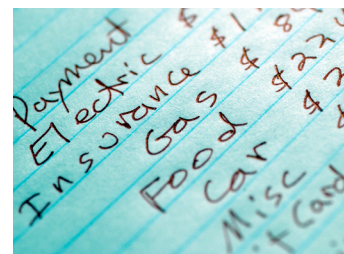 Payment $
Electric $1
Insurance $ 8
Gas $22
Food $2
Car $
Misc
Card